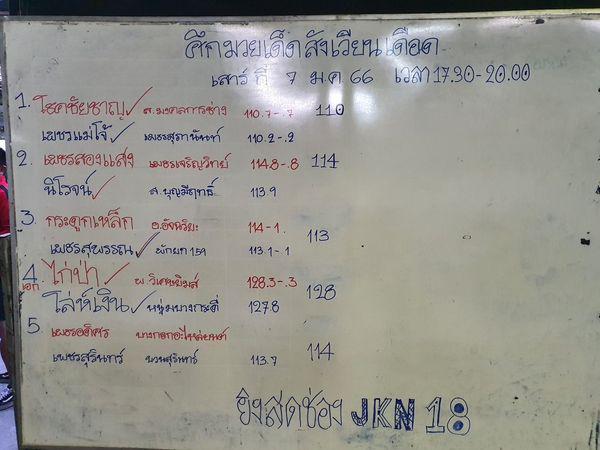 ศึกมวยเด็ดสังเวียนเดือด
เสาร์ ที่ 7 ม.ค 66 เวลา 17.30-20.00
1. โชคชัยชาญ ✓ ส.มงคลการช่าง 110.7-.7 110
เพชรแม่โจ้ ✓ เพชรสุภานันท์ 110.2-.2
2. เพชรสองแสง เพชรเจริญวิทย์ 114.8-.8 114
นิโรจน์ ✓ ส.บุญมีฤทธิ์ 113.9
3. กระดูกเหล็ก อ.อัจฉริยะ 114-1 113
เพชรสุพรรณ ✓ พักยก 159 113.1-.1
4. ไก่ป่า ✓ พ.วิเศษยิมส์ 128.3-.3 128
เอก โล่ห์เงิน ✓ หนุ่มบางกะดี่ 127.8
5. เพชรอดิศร บางกอกอะไหล่ยนต์
เพชรสุรินทร์ นวนสุรินทร์ 113.7 114
ยิงสดช่อง JKN 18